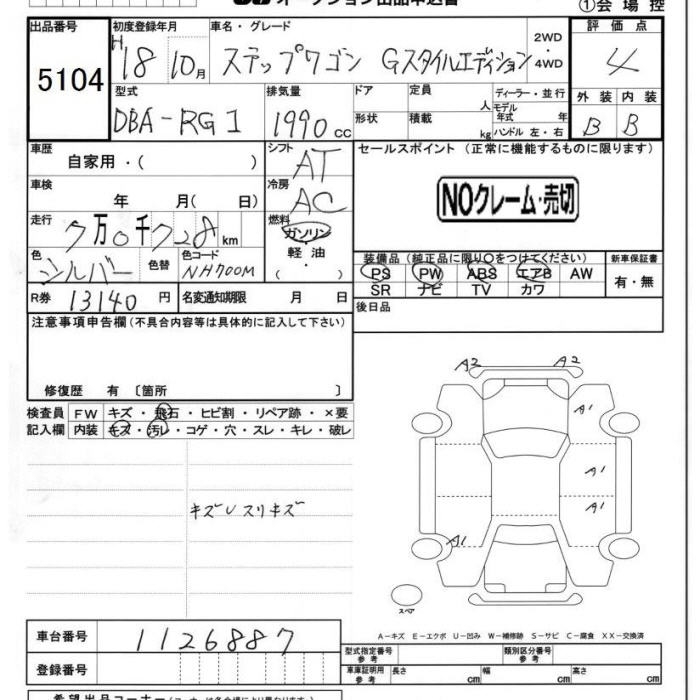 オークション出品申込書
①会場控
出品番号 初度登録年月 車名・グレード 2WD 4WD 評価点
5104 H 18 10月 ステップワゴン Gスタイルエディション 4
型式 排気量 ドア 定員 人 ディーラー・並行 外装 内装
DBA-RG1 1990cc 形状 積載 kg モデル年式 年 ハンドル 左・右 B B
車歴 シフト セールスポイント (正常に機能するものに限ります)
自家用・( ) AT
車検 冷房 NOクレーム・売切
年 月( 日) AC
走行 燃料
7万0千728km ガソリン
色 色替 色コード 軽油 装備品 (純正品に限り○をつけてください) 新車保証書
シルバー NH700M ・ PS PW ABS エアB AW 有・無
R券 13140円 名変通知期限 月 日 SR ナビ TV カワ
注意事項申告欄(不具合内容等は具体的に記入して下さい) 後日品
修復歴 有 〔箇所 〕
A2 A2
検査員 FW キズ・飛石・ヒビ割・リペア跡・×要
A1
記入欄 内装 キズ・汚レ・コゲ・穴・スレ・キレ・破レ
A1
キズUスリキズ
A1
A1
スペア
A-キズ E-エクボ U-凹み W-補修跡 S-サビ C-腐食 XX-交換済
車台番号 1126887
型式指定番号 参考 類別区分番号 参考
登録番号 車庫証明用 参考 長さ cm 幅 cm 高さ cm
希望出品コーナー